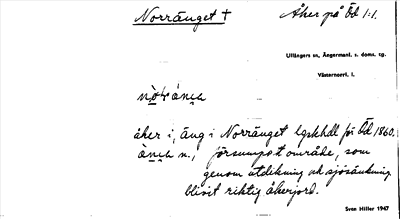 Norränget † Åker på Öd 1:1.
Ullångers sn, Ångermanl. s. doms. tg.
Västernorrl. l.
åker i, äng i Norränget lgskhdl för Öd 1860.
n., försumpat område, som
genom utdikning ock sjösänkning
blivit riktig åkerjord.
Sven Hiller 1947